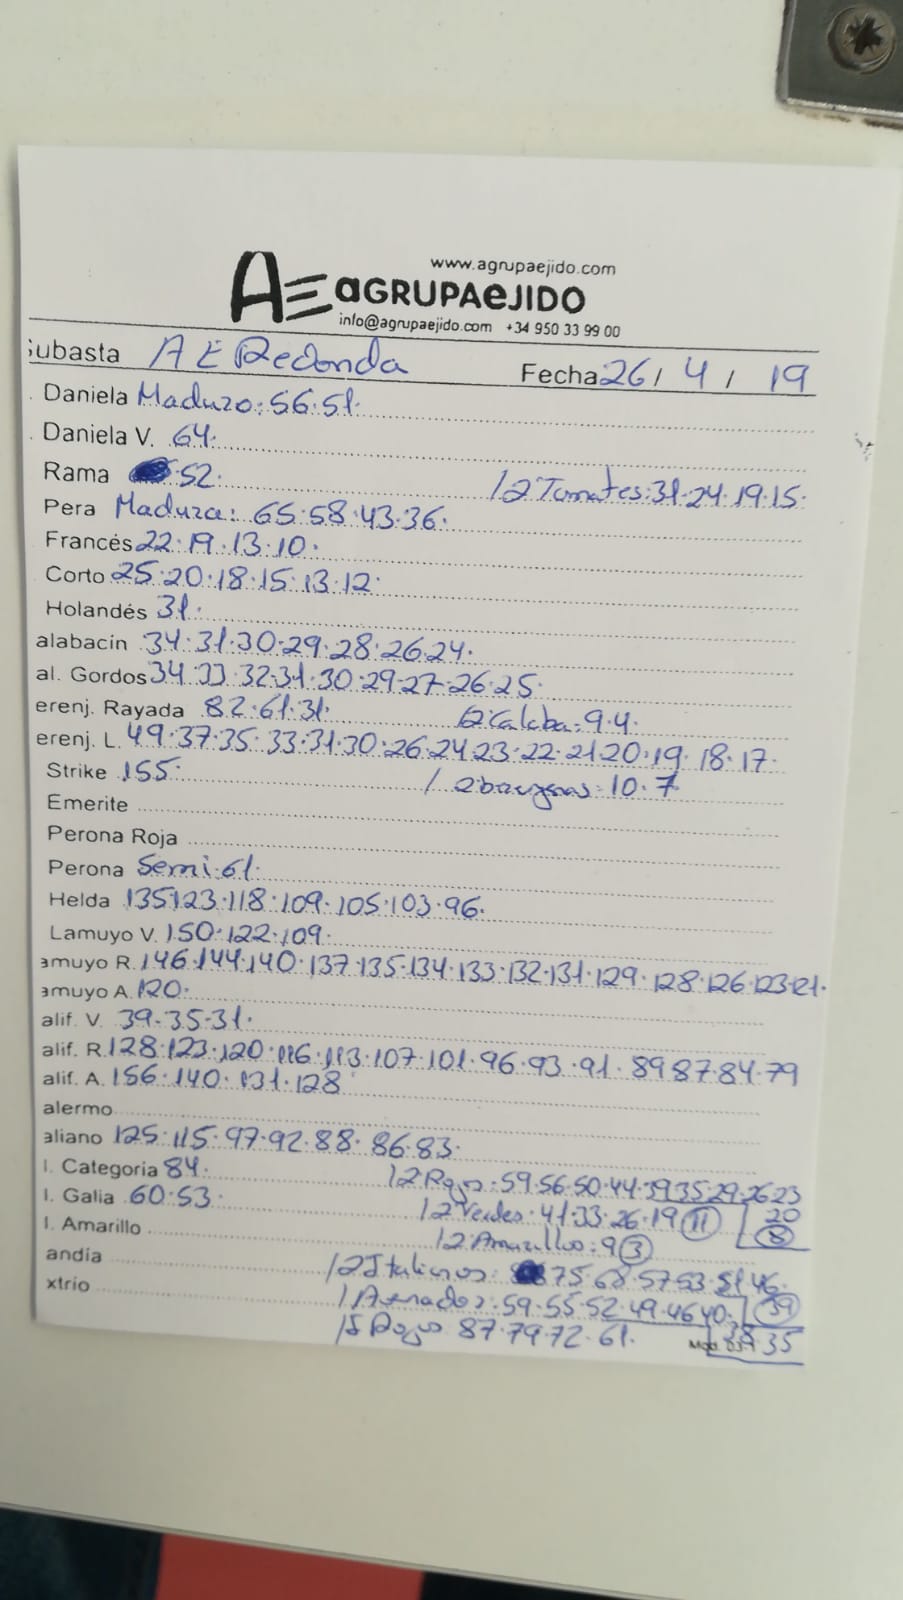 www.agrupaejido.com
AE aGRUPAeJIDO
info@agrupaejido.com +34 950 33 99 00
Subasta A E Redonda Fecha 26 / 4 / 19
Daniela Maduro: 56.51.
Daniela V. 64.
Rama 52. /2ª Tomates: 31.24.19.15.
Pera Madura: 65.58.43.36.
Francés 22.19.13.10.
Corto 25.20.18.15.13.12.
Holandés 31.
alabacín 34.31.30.29.28.26.24.
al. Gordos 34.33.32.31.30.29.27.26.25.
erenj. Rayada 82.61.31. /2ª Calaba: 9.4.
erenj. L. 49.37.35.33.31.30.26.24.23.22.21.20.19.18.17.
Strike 155. /2ª : 10.7.
Emerite
Perona Roja
Perona Semi.61.
Helda 135.123.118.109.105.103.96.
Lamuyo V. 150.122.109.
amuyo R. 146.144.140.137.135.134.133.132.131.129.128.126.123.121.
amuyo A. 120.
alif. V. 39.35.31.
alif. R. 128.123.120.116.113.107.101.96.93.91.89.87.84.79
alif. A. 156.140.131.128
alermo
aliano 125.115.97.92.88.86.83.
l. Categoria 84. /2 Rojos: 59.56.50.44.39.35.29.26.23
20
l. Galia 60.53. /2 Verdes: 41.33.26.19 (11) (8)
l. Amarillo /2 Amarillos: 9 (3)
andia /2 Italianos: 75.68.57.53.51.46. (39)
xtrio / Asenados: 59.55.52.49.46.40. 38.35
/S Rojos 87.79.72.61.